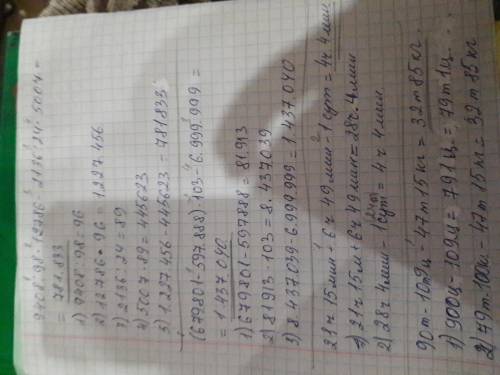 9408:98·12786-2136:24·5004=
=781.833
1) 9408:98=96
2) 12786·96=1.227.456
3) 2136:24=89
4) 5007·89=445623
5) 1.227.456-445623=781833
(679801-597.888)·103-6.999.999=
=1.437.040
1) 679801-597888=81.913
2) 81913·103=8.437.039
3) 8.437.039-6.999.999=1.437.040
21ч 15мин+6ч 49мин-1сут=4ч 4мин
1) 21ч 15м+6ч 49мин=28ч.4мин
2) 28ч 4мин-1сут=4ч 4мин.
90т-10т9ц-47т 15кг=32т 85кг.
1) 900ц-109ц=791ц=79т 1ц
2) 79т 100кг-47т 15кг=32т 85кг